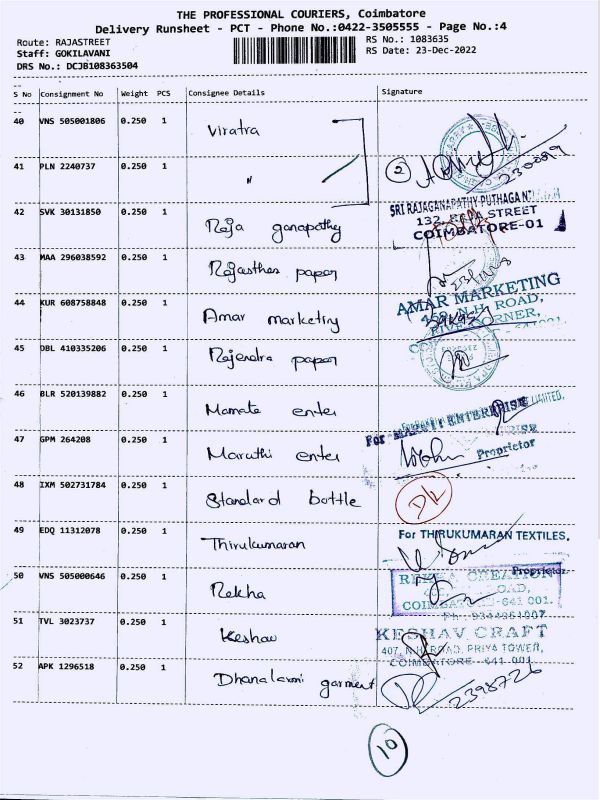 THE PROFESSIONAL COURIERS, Coimbatore
Delivery Runsheet - PCT - Phone No.:0422-3505555 - Page No.:4
Route: RAJASTREET
RS No.: 1083635
Staff: GOKILAVANI
RS Date: 23-Dec-2022
DRS No.: DCJB108363504
S No Consignment No Weight PCS Consignee Details Signature
40 VNS 505001806 0.250 1 Viratra
41 PLN 2240737 0.250 1 " 2 230899
SRI RAJAGANAPATHY PUTHAGA
42 SVK 30131850 0.250 1 Raja ganapathy 132, RAJA STREET
COIMBATORE-01
43 MAA 296038592 0.250 1 Rajasthan paper
AMAR MARKETING
44 KUR 608758848 0.250 1 Amar marketing N.H. ROAD,
CORNER,
45 DBL 410335206 0.250 1 Rajendra paper
46 BLR 520139882 0.250 1 Mamata enter LIMITED.
For MARUTI ENTERPRISE
47 GPM 264208 0.250 1 Maruthi enter Proprietor
48 IXM 502731784 0.250 1 Standard bottle
49 EDQ 11312078 0.250 1 Thirukumaran For THIRUKUMARAN TEXTILES.
Proprietor
50 VNS 505000646 0.250 1 Rekha REKHA CREATION
ROAD,
COIMBATORE-641 001.
51 TVL 3023737 0.250 1 Keshav KESHAV CRAFT
407, N.H. ROAD, PRIYA TOWER,
COIMBATORE - 641 001
52 APK 1296518 0.250 1 Dhanalaxmi garment 2398726
10